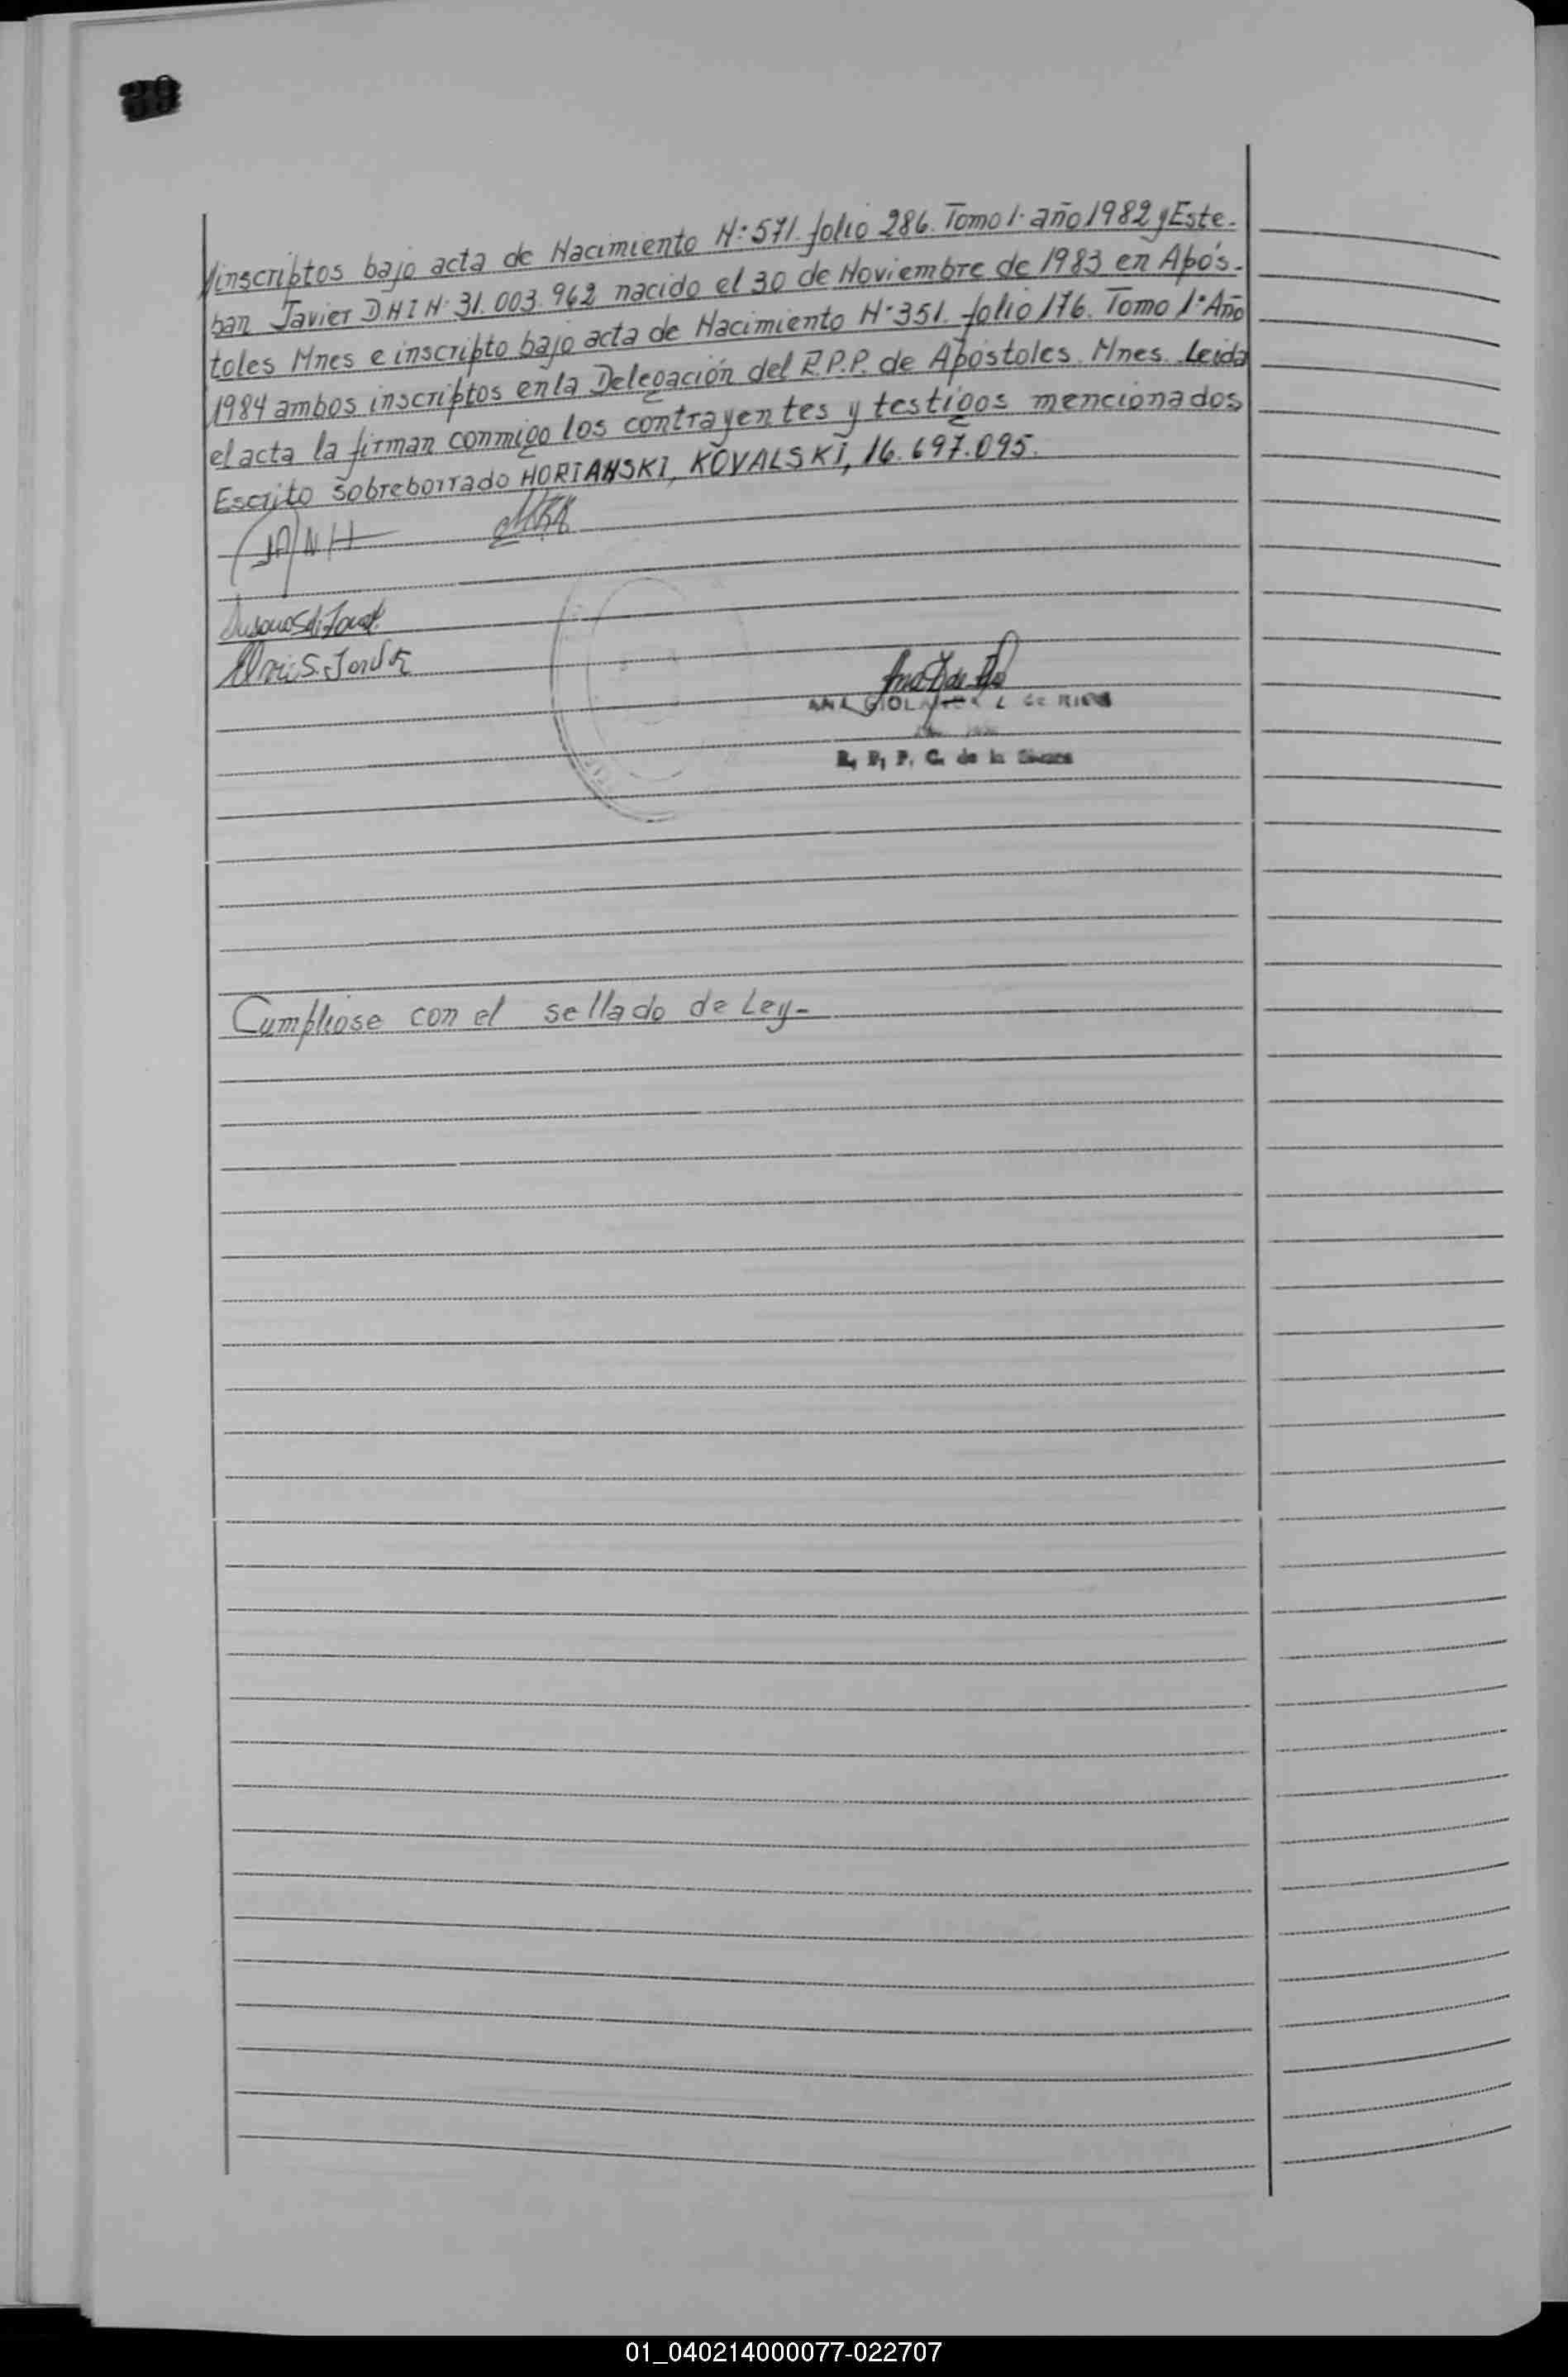 39
//inscriptos bajo acta de Nacimiento N: 571. folio 286. Tomo 1· año 1982 y Este-
ban Javier D.N.I N: 31.003.962 nacido el 30 de Noviembre de 1983 en Após-
toles Mnes e inscripto bajo acta de Nacimiento N· 351. folio 176. Tomo 1· Año
1984 ambos inscriptos en la Delegación del R.P.P. de Apóstoles. Mnes. Leida
el acta la firman conmigo los contrayentes y testigos mencionados
Escrito sobreborrado HORIANSKI, KOVALSKI, 16.697.095.
ANA L. de RIOS
R. P. P. C. de la
Cumpliose con el sellado de Ley-
01_040214000077-022707